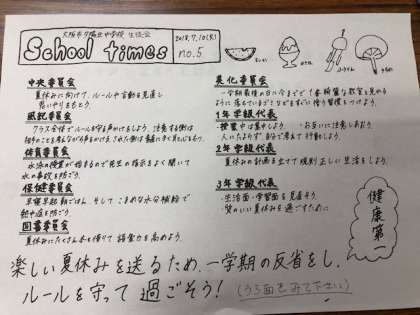 大阪市夕陽丘中学校 生徒会
School times
2018.7.10(火)
no.5
すいか
かき氷
ふうりん
うちわ
中央委員会
夏休みに向けて、ルールや言動を見直し
思いやりをもとう。
風紀委員会
クラス全体でルールを守る声かけをしよう。注意する側は
相手のことを考えながら声をかけ、された側は素直に受け止めよう。
体育委員会
水泳の授業が始まるので先生の指示をよく聞いて
水の事故を防ごう。
保健委員会
早寝早起朝ごはん、そして こまめな水分補給で
熱中症を防ごう。
図書委員会
夏休みにたくさん本を借りて 語彙力を高めよう。
美化委員会
一学期最後の日に今までで1番綺麗な教室を見れる
ように落ちているゴミなどをすぐに拾う習慣をつけよう。
1年学級代表
・授業中は集中しよう ・お互いに注意しあおう
・人にたよらず、自分で考えて行動しよう
2年学級代表
夏休みの計画を立てて規則正しい生活をしよう。
3年学級代表
・生活面・学習面を見直そう
・質のいい夏休みを過ごすために
健康第一
楽しい夏休みを送るため、一学期の反省をし、
ルールを守って過ごそう!(うら面をみて下さい)